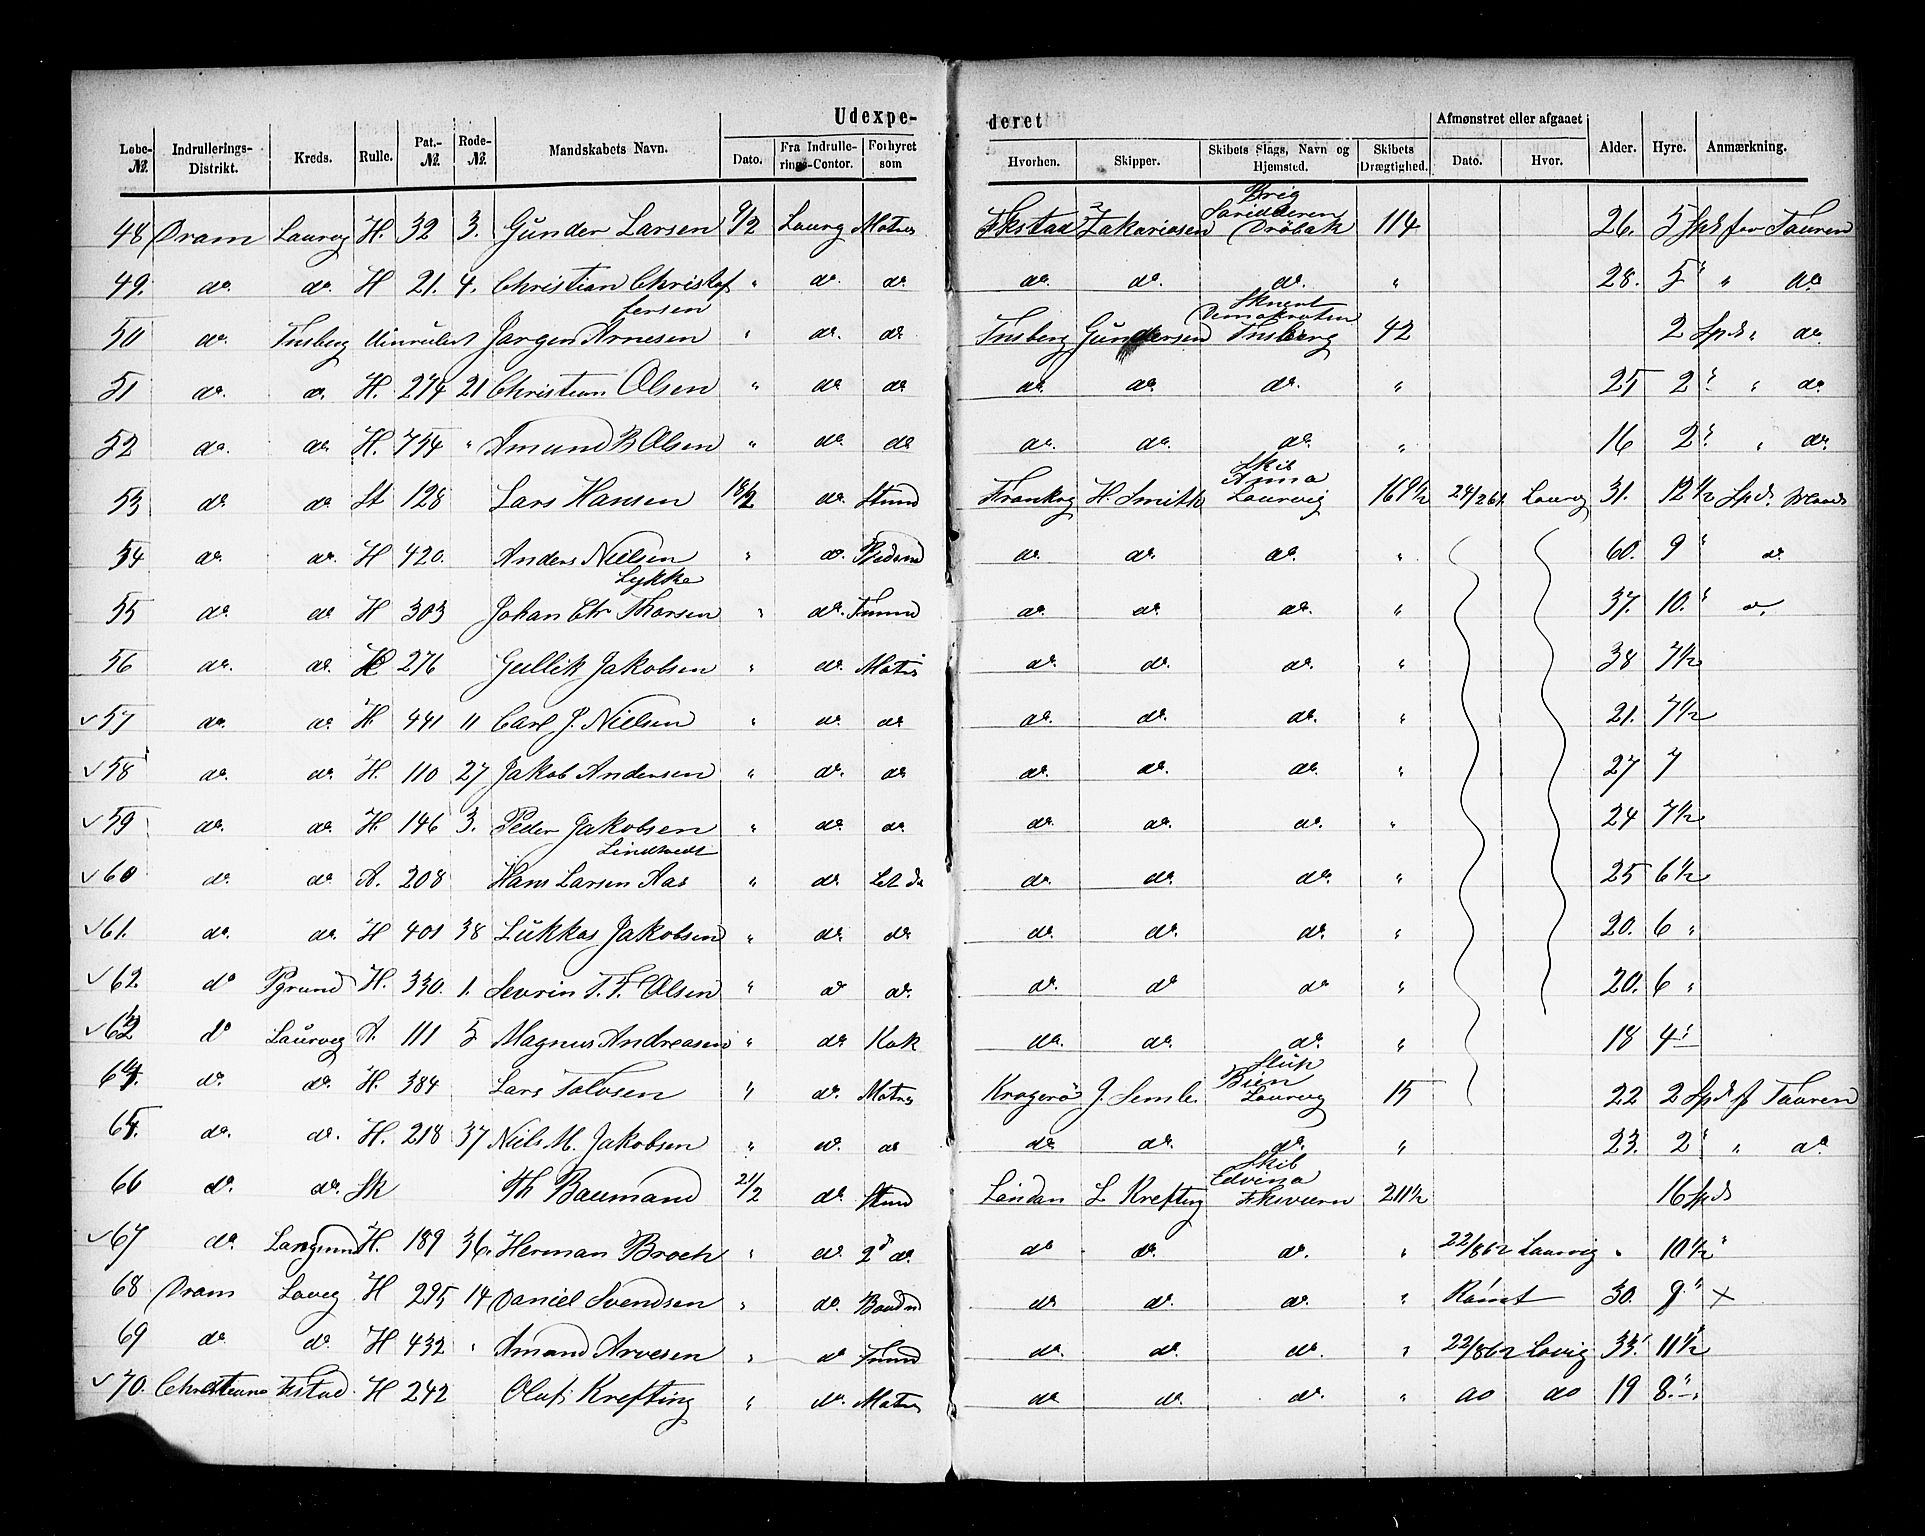 Udexpe- deret
Løbe-№. Indrullerings-Distrikt. Kreds. Rulle. Pat.-№. Rode-№. Mandskabets Navn. Dato. Fra Indrullerings-Contor. Forhyret som Hvorhen. Skipper. Skibets Slags, Navn og Hjemsted. Skibets Drægtighed. Afmønstret eller afgaaet Dato. Hvor. Alder. Hyre. Anmærkning.
48 Dram Laurvg H. 32 3. Gunder Larsen 9/2 Laurg Matrs Fkstad Zakariasen Brig Drøbak 114 26. 5 Spd for Touren
49. do. do. H 21. 4. Christian Christoffersen " do do do. do. do. " 28. 5 " " do
50 do. Tnsberg Uinrulert Jørgen Arnesen " do. do Tnsberg Gundersen Demokraten Tnsberg 42 2 Spd " do.
51 do. do. H. 274 21 Christian Olsen " do do do. do. do. " 25 2 " " do.
52 do. do. H. 754 " Amund B Olsen " do. do do. do. do. " 16 2 " " do.
53 do. do St 128 Lars Hansen 18/2 do. Stmd Frankrg H. Smith Skib Anna Laurvig 169 1/2 24/2 61. Laurvg 31. 12 1/2 Spd. Maand
54 do. do H 420. Anders Nielsen Lykke " do. do. do. do. " 60. 9 " do.
55 do. do H 303 Johan Chr Thorsen " do. Tmmd do. do. do. " 37. 10. " do.
56 do. do. H 276 Gullik Jakobsen " do. Matrs do. do. do. " 38 7 1/2
57 do. do H 441 11 Carl J. Nielsen " do. do do. do. do. " 21. 7 1/2
58 do. do H. 110 27 Jakob Andersen " do. do do. do. do. " 27 7
59 do. do. H. 146 3. Peder Jakobsen Lindtvedt " do. do do. do. do. " 24 7 1/2
60 do. do A. 208 Hans Larsen Aas " do Let do do. do. do. " 25 6 1/2
61. do. do. H 401 38 Lukkas Jakobsen " do. do. do. do. do. " 20. 6 "
62. do Pgrund H. 330. 1. Sevrin T. F. Olsen " do do. do. do do " 20. 6 "
62 1/2 do Laurvg A. 111 5 Magnus Andreasen " do Kok do. do. do. " 18 4 "
64. do. do. H. 384 Lars Tolvsen " do. Matrs Kragerø J. Semb. Slup Bien Laurvg 15 22 2 Spd f Touren
65. do. do. H. 218 37 Niels M. Jakobsen " do. do do. do. do. " 23. 2 " " do
66 do. do. Sk Th Baumand 21/2 do. Stmd London L Krefting Skib Edvina 211 1/2 16 Spd
67 do. Langsund H. 189 36. Herman Broch " do. 2d do. do do. do. " 22/8 62 Laurvig " 10 1/2 "
68 Dram Lavrg H 295 14 Daniel Svendsen " do. Baadsm do do. do. " Rømt 30. 8 " X
69 do do. H 432 " Amand Arvesen " do Tmmd do. do. do. " 22/8 62 Lavrig 33. 11 1/2
70. Christiania Fstad H 242 Oluf Krefting " do. Matrs do do. do. " do do 19 8. "